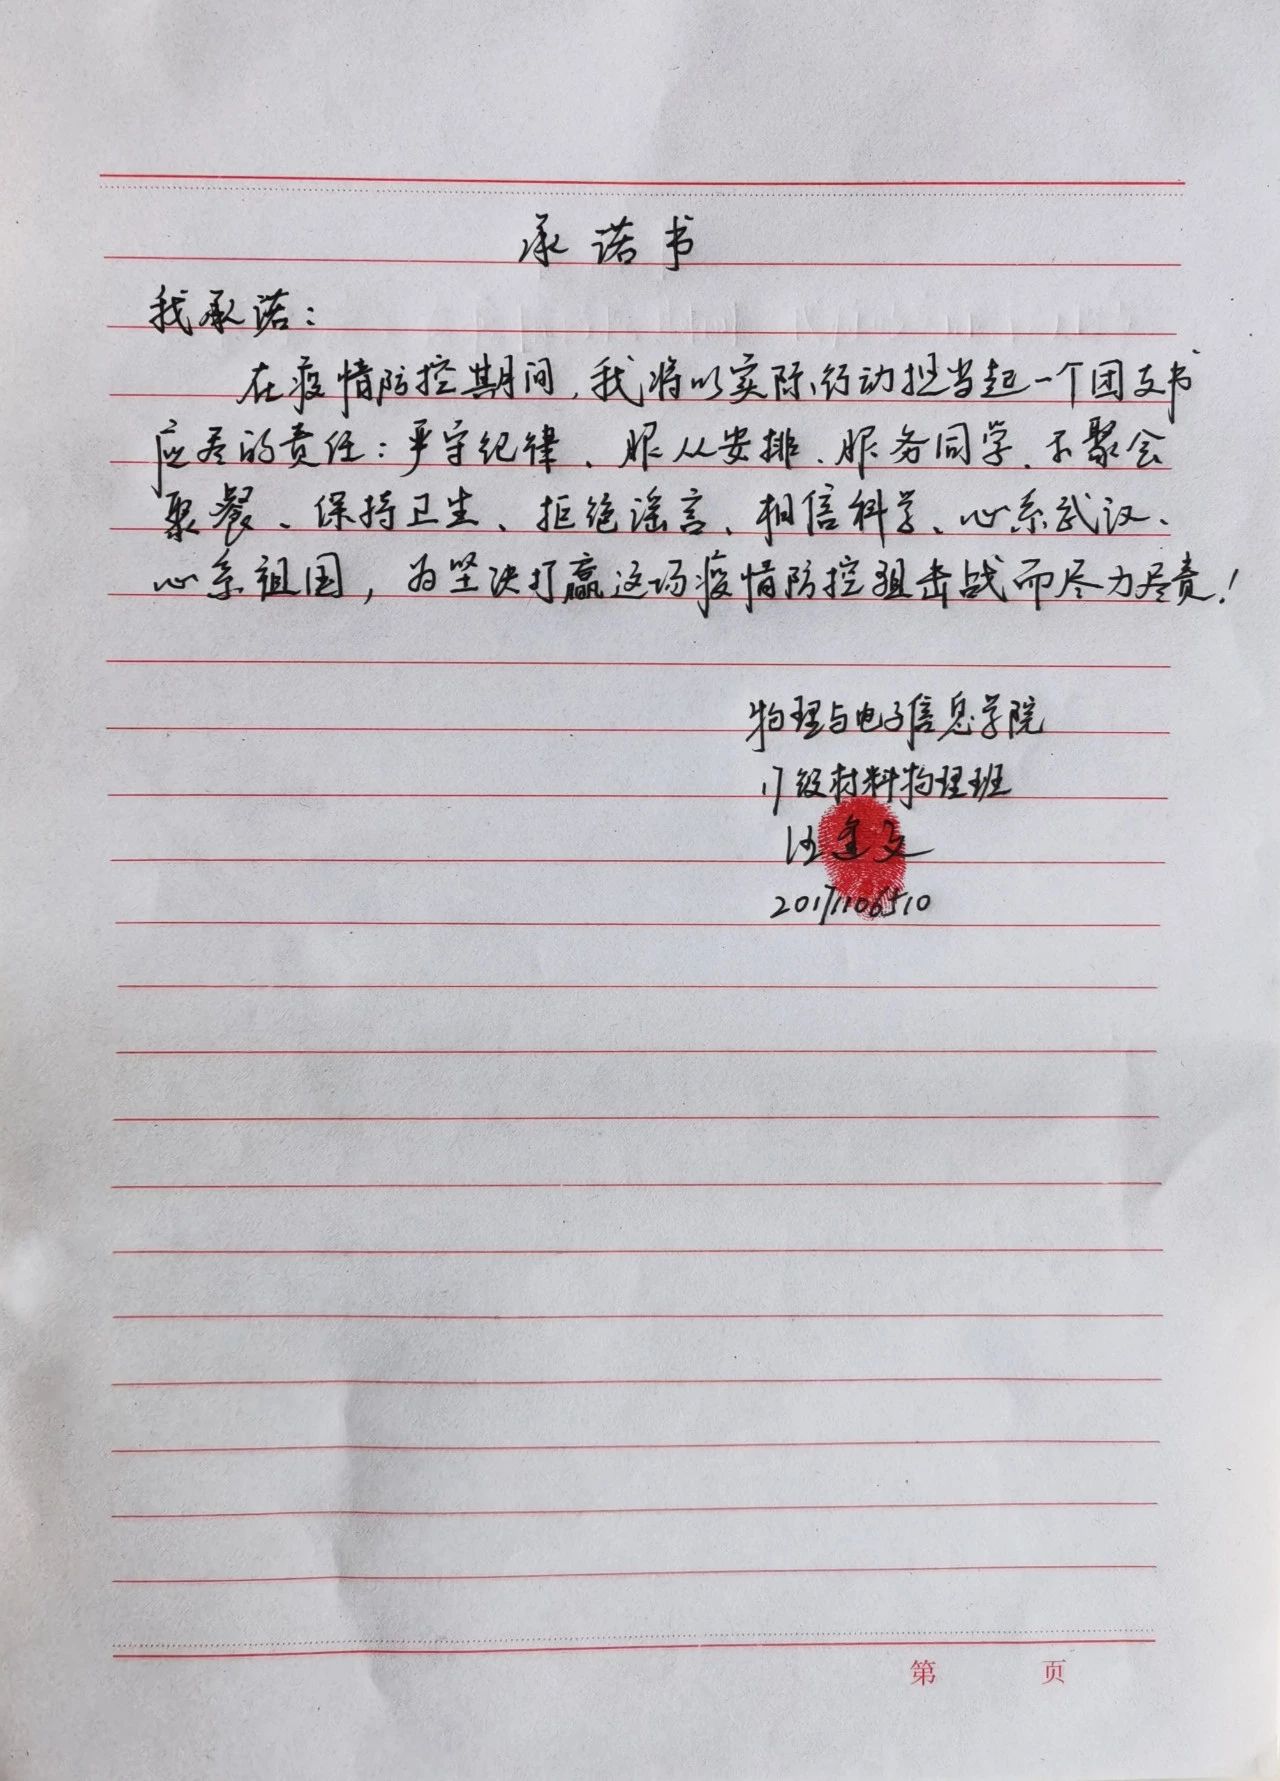 承诺书
我承诺：
在疫情防控期间，我将以实际行动担当起一个团支书
应尽的责任：严守纪律、服从安排、服务同学、不聚会
聚餐、保持卫生、拒绝谣言、相信科学、心系武汉、
心系祖国，为坚决打赢这场疫情防控狙击战而尽力尽责！
物理与电子信息学院
17级材料物理班
汪建文
20171106510
第 页